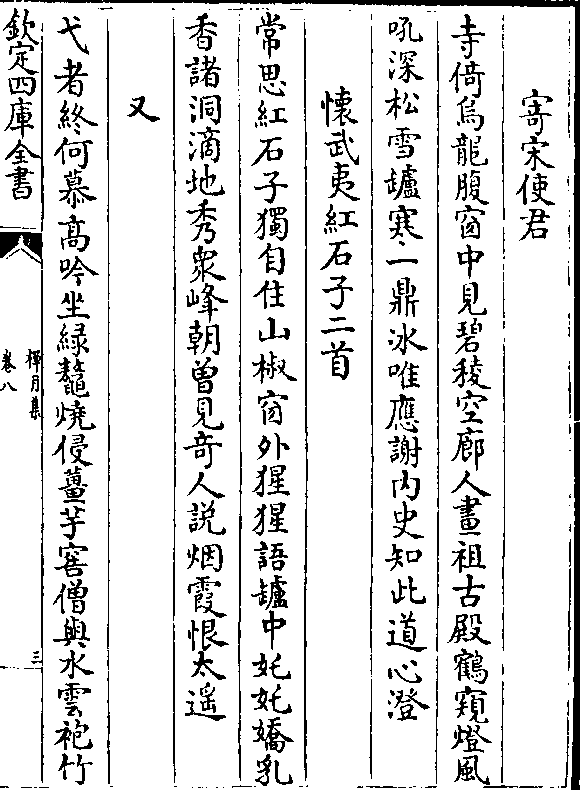 寄宋使君
寺倚烏龍腹窗中見碧稜空廊人畫祖古殿鶴窺燈風
吼深松雪罏寒一鼎冰唯應謝内史知此道心澄
懷武夷紅石子二首
常思紅石子獨自住山椒窗外猩猩語罏中妊妊嬌乳
香諸洞滴地秀衆峰朝曾見奇人説烟霞恨太遥
又
弋者終何慕高吟坐緑鼇燒侵薑芋窖僧與水雲袍竹
欽定四庫全書
禪月集
卷八
三